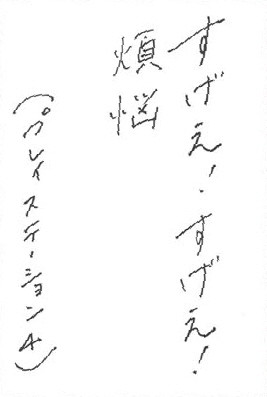 すげえ!すげえ!
煩悩
(プレイステーション4)